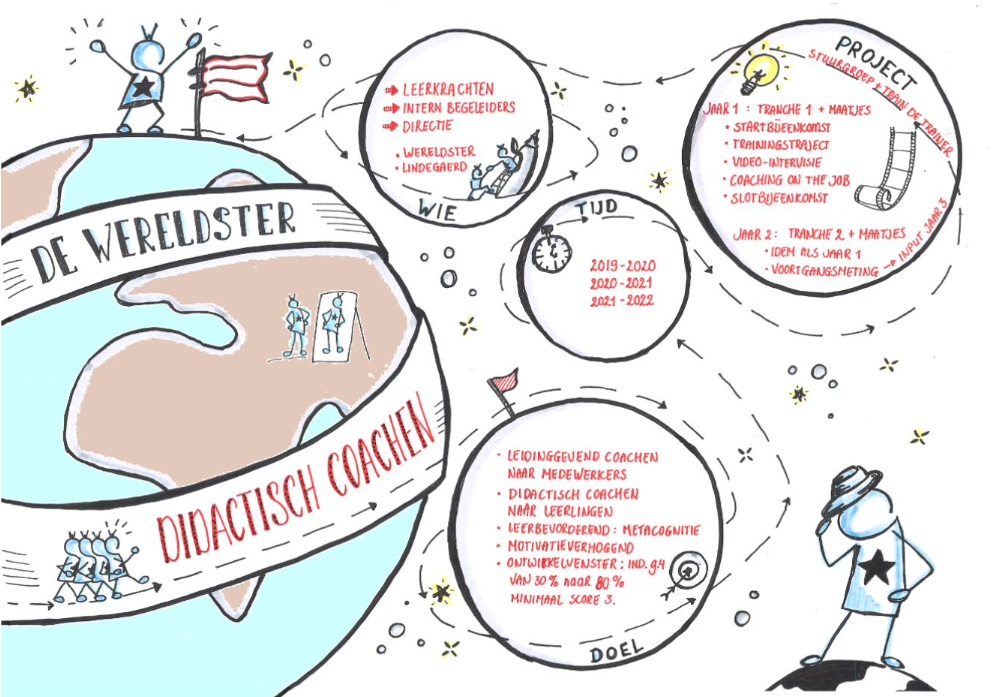 DE WERELDSTER
DIDACTISCH COACHEN
LEERKRACHTEN
INTERN BEGELEIDERS
DIRECTIE
• WERELDSTER
• LINDEGAERD
WIE
TIJD
2019-2020
2020-2021
2021-2022
PROJECT
STUURGROEP + TRAIN DE TRAINER
JAAR 1 : TRANCHE 1 + MAATJES
• STARTBIJEENKOMST
• TRAININGSTRAJECT
• VIDEO-INTERVISIE
• COACHING ON THE JOB
• SLOTBIJEENKOMST
JAAR 2: TRANCHE 2 + MAATJES
• IDEM ALS JAAR 1
• VOORTGANGSMETING → INPUT JAAR 3
• LEIDINGGEVEND COACHEN
NAAR MEDEWERKERS
• DIDACTISCH COACHEN
NAAR LEERLINGEN
• LEERBEVORDEREND: METACOGNITIE
• MOTIVATIEVERHOGEND
• ONTWIKKELVENSTER: IND. 9.4
VAN 30% naar 80%
MINIMAAL SCORE 3.
DOEL